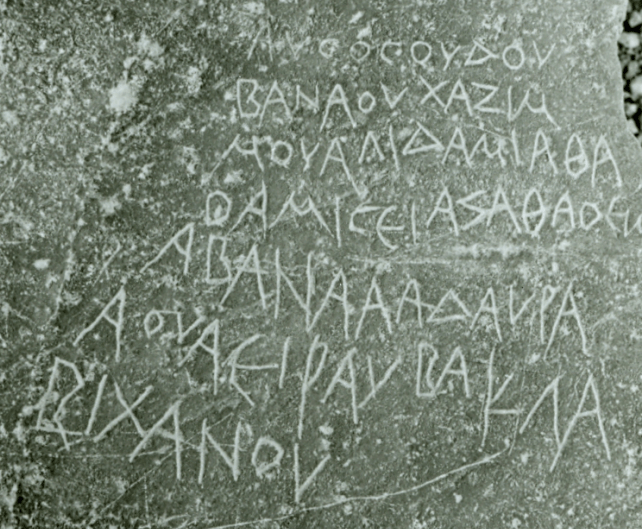 ΑΥϹΟϹΟΥΔΟΥ
ΒΑΝΑΟΥΧΑΖΙΜ
ΜΟΥΑΛΙΔΑΜΙΑΘΑ
ΟΑΜΙϹϵΙΑSΑΘΑΟϵΥ
ΑΒΑΝΑΑΑΔΑΥΡΑ
ΑΟΥΑϵΙΡΑΥΒΑΚΛΑ
ΒΙΧΑΝΟΥ